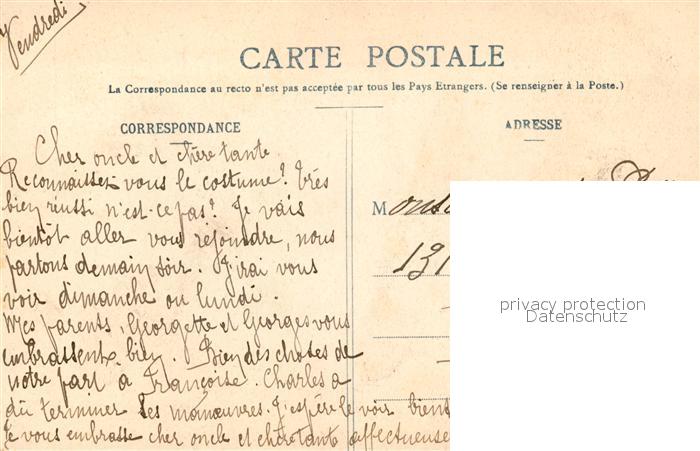 Vendredi
CARTE POSTALE
La Correspondance au recto n'est pas acceptée par tous les Pays Etrangers. (Se renseigner à la Poste.)
CORRESPONDANCE
Cher oncle et chère tante
Reconnaissez-vous le costume? Très
bien réussi n'est-ce pas? Je vais
bientôt aller vous rejoindre, nous
partons demain soir. J'irai vous
voir dimanche ou lundi.
Mes parents, Georgette et Georges vous
embrassent bien. Bien des choses de
notre part à Françoise. Charles a
dû terminer les manœuvres. J'espère le voir bient
Je vous embrasse cher oncle et chère tante affectueuse
ADRESSE
Monsi
131
privacy protection
Datenschutz